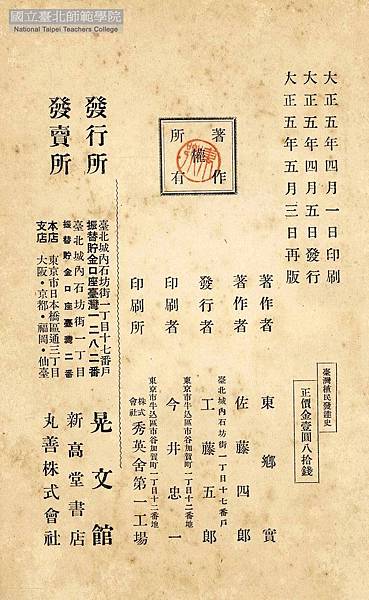 國立臺北師範學院
National Taipei Teachers College
大正五年四月一日印刷
大正五年四月五日發行
大正五年五月三日再版
臺灣植民發達史
正價金壹圓八拾錢
著作權所有
著作者 東鄉實
著作者 佐藤四郎
臺北城內石坊街一丁目十七番戶
發行者 工藤五郎
東京市牛込區市谷加賀町一丁目十二番地
印刷者 今井忠一
東京市牛込區市谷加賀町一丁目十二番地
印刷所 株式會社 秀英舍第一工場
發行所 臺北城內石坊街一丁目十七番戶 晃文館
振替貯金口座臺灣一二八二番
發賣所
臺北城內石坊街一丁目 新高堂書店
振替貯金口座臺灣二番
本店 東京市日本橋區通三丁目 丸善株式會社
支店 大阪・京都・福岡・仙臺